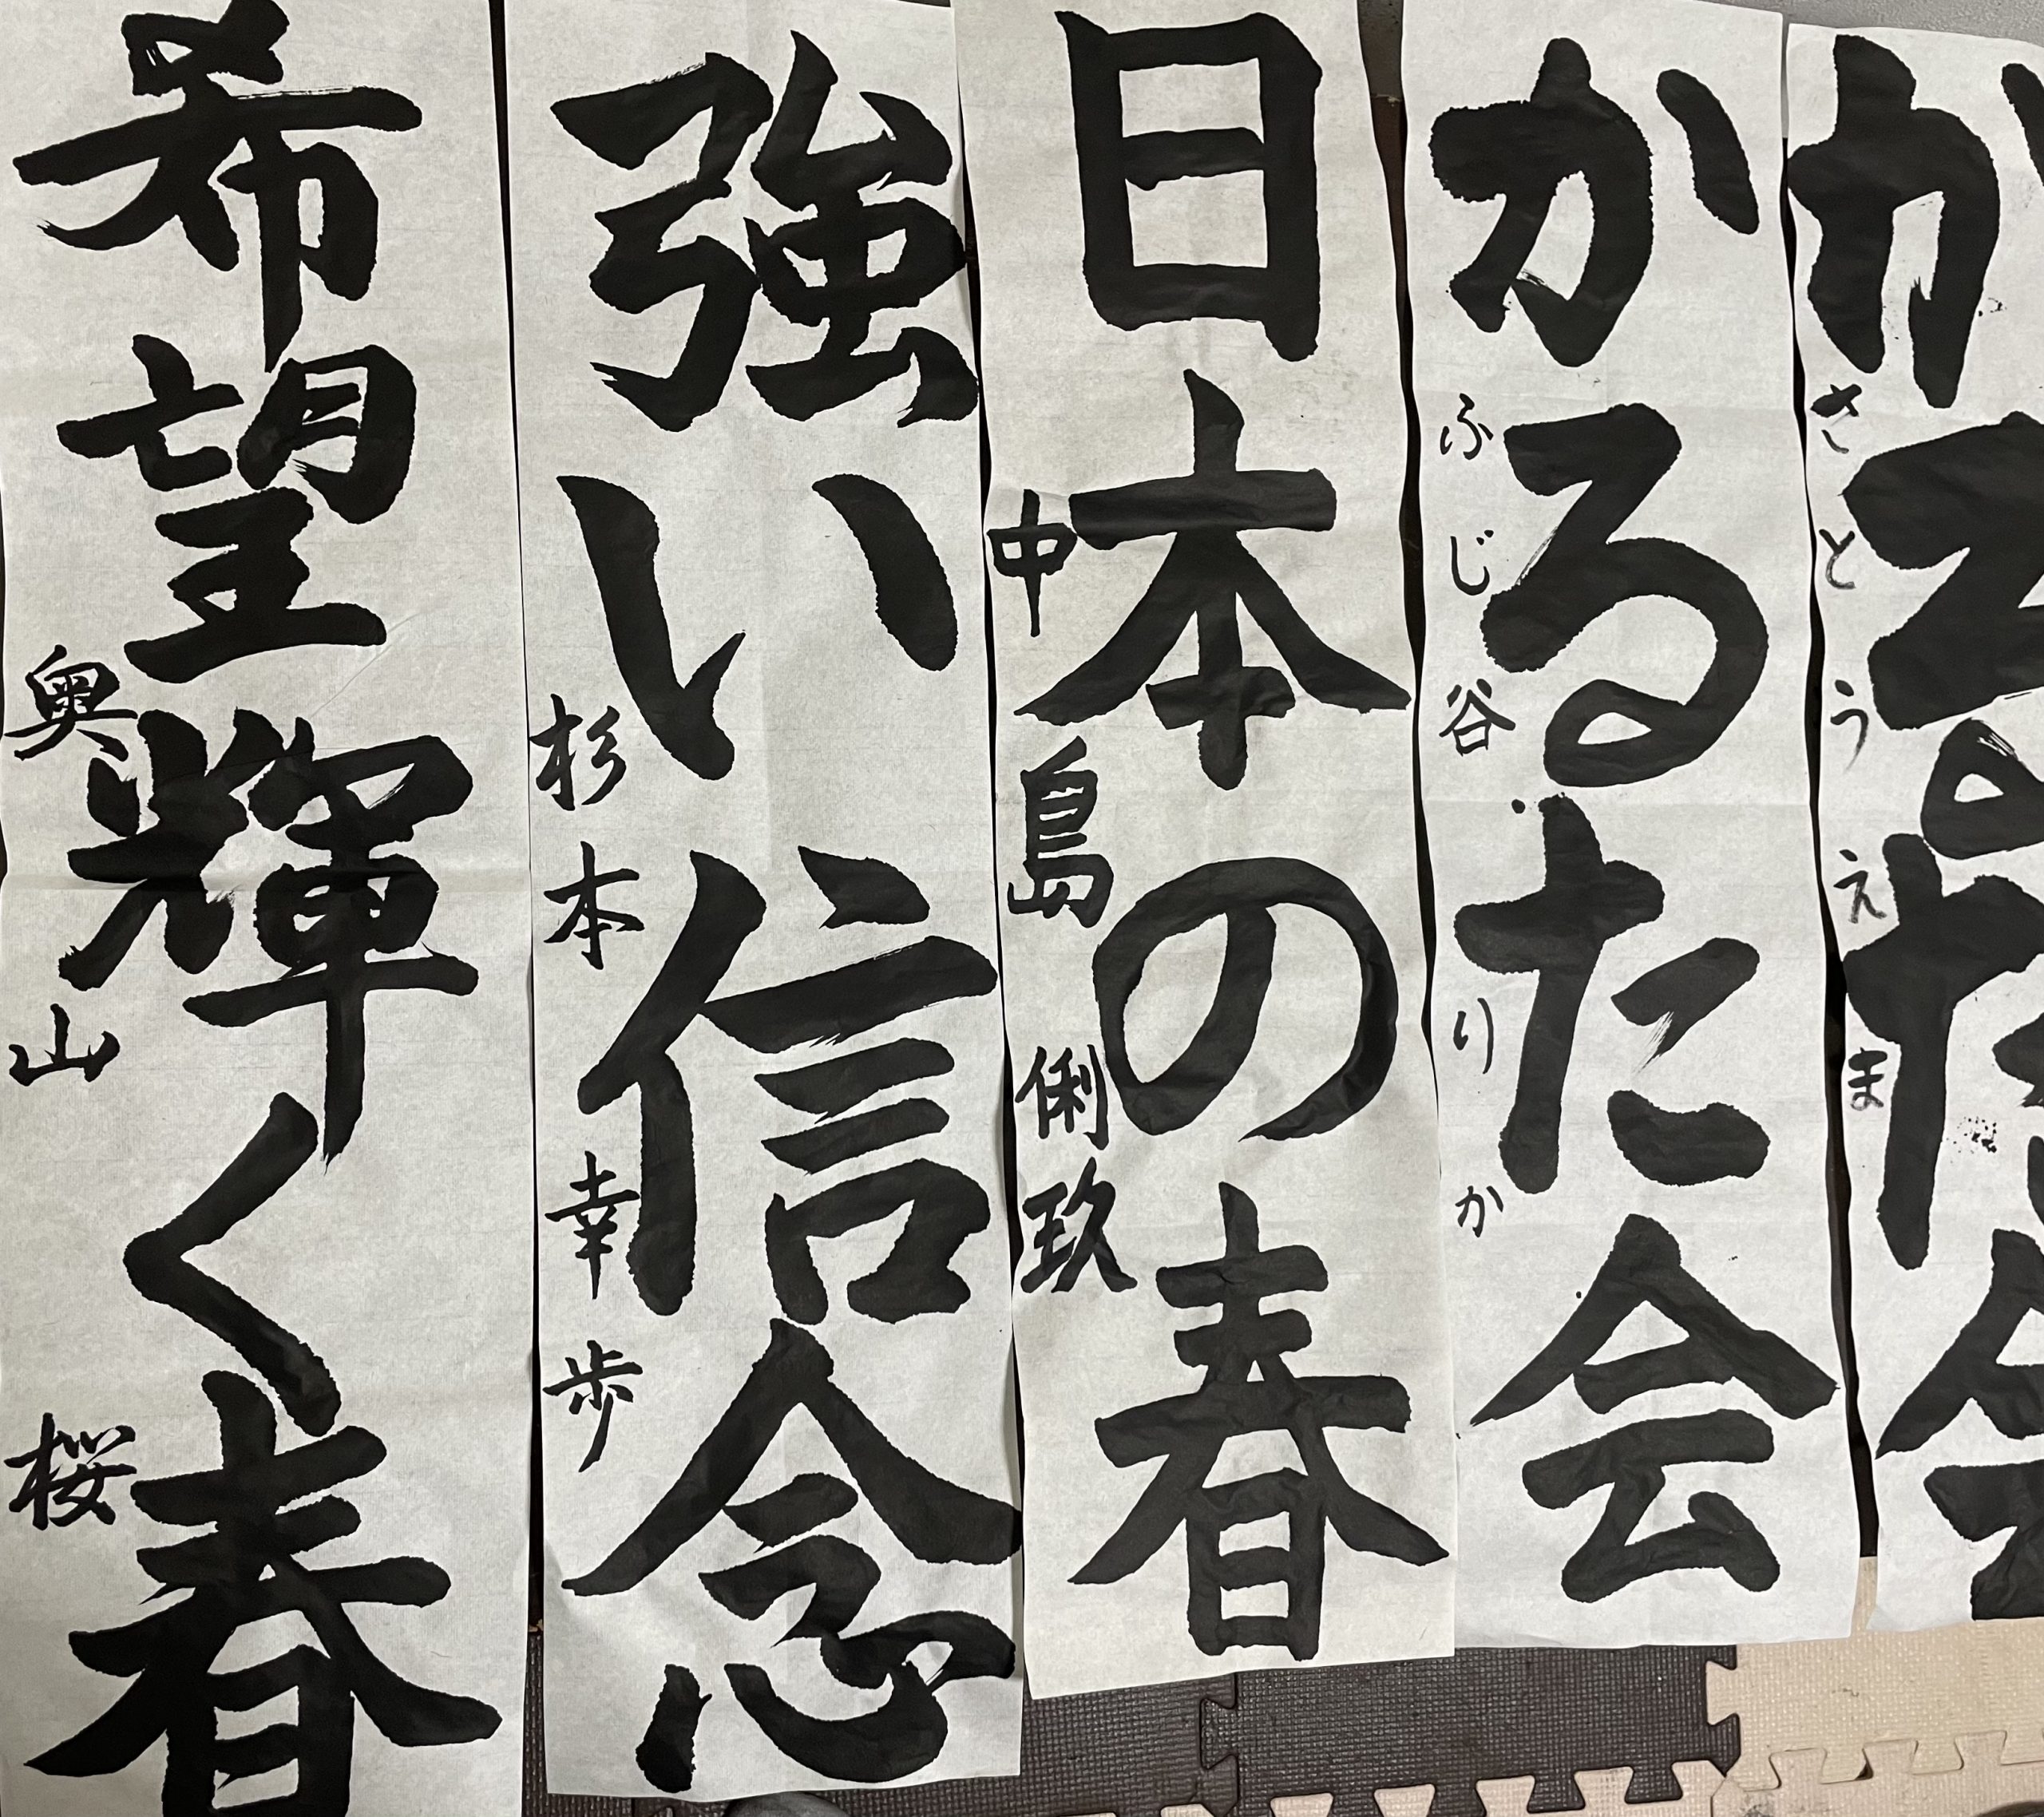 かるた会
さとうえま
かるた会
ふじ谷りか
日本の春
中島俐玖
強い信念
杉本幸歩
希望輝く春
奥山桜